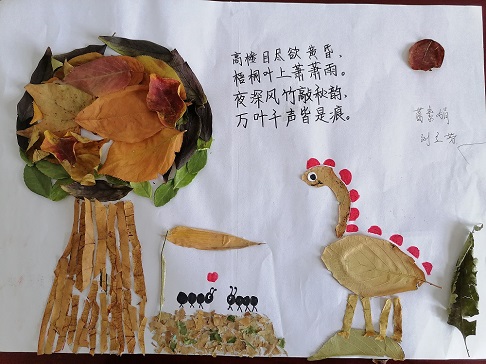 高楼目尽欲黄昏，
梧桐叶上萧萧雨。
夜深风竹敲秋韵，
万叶千声皆是痕。